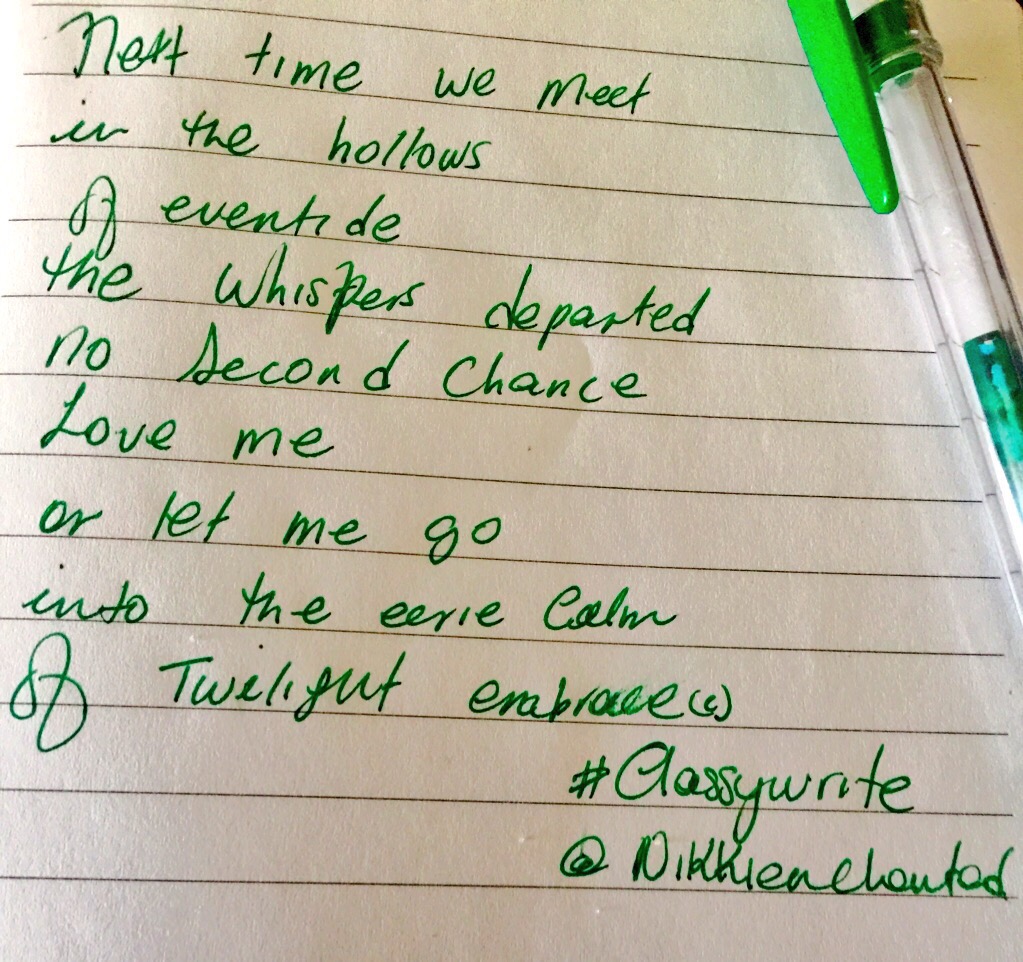 Next time we meet
in the hollows
of eventide
the whispers departed
no second Chance
Love me
or let me go
into the eerie Calm
of Twelight embrace(s)
#Classywrite
@Nikkienchanted